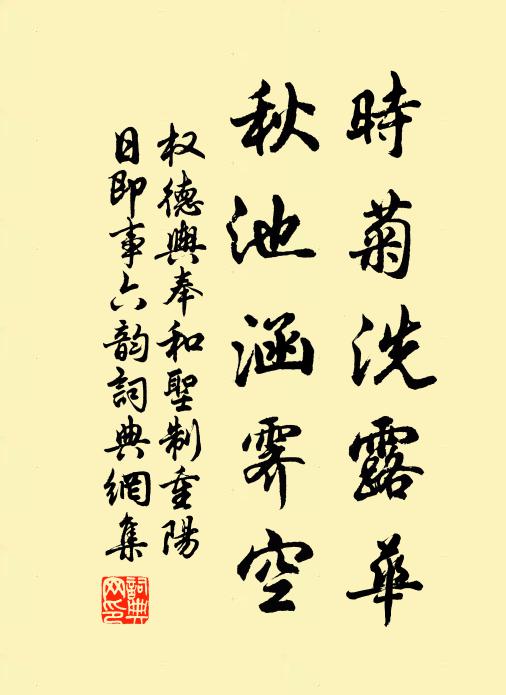 時菊洗露華
秋池涵霽空
权德輿奉和聖制重陽
日即事六韵詞典網集
詞典網印